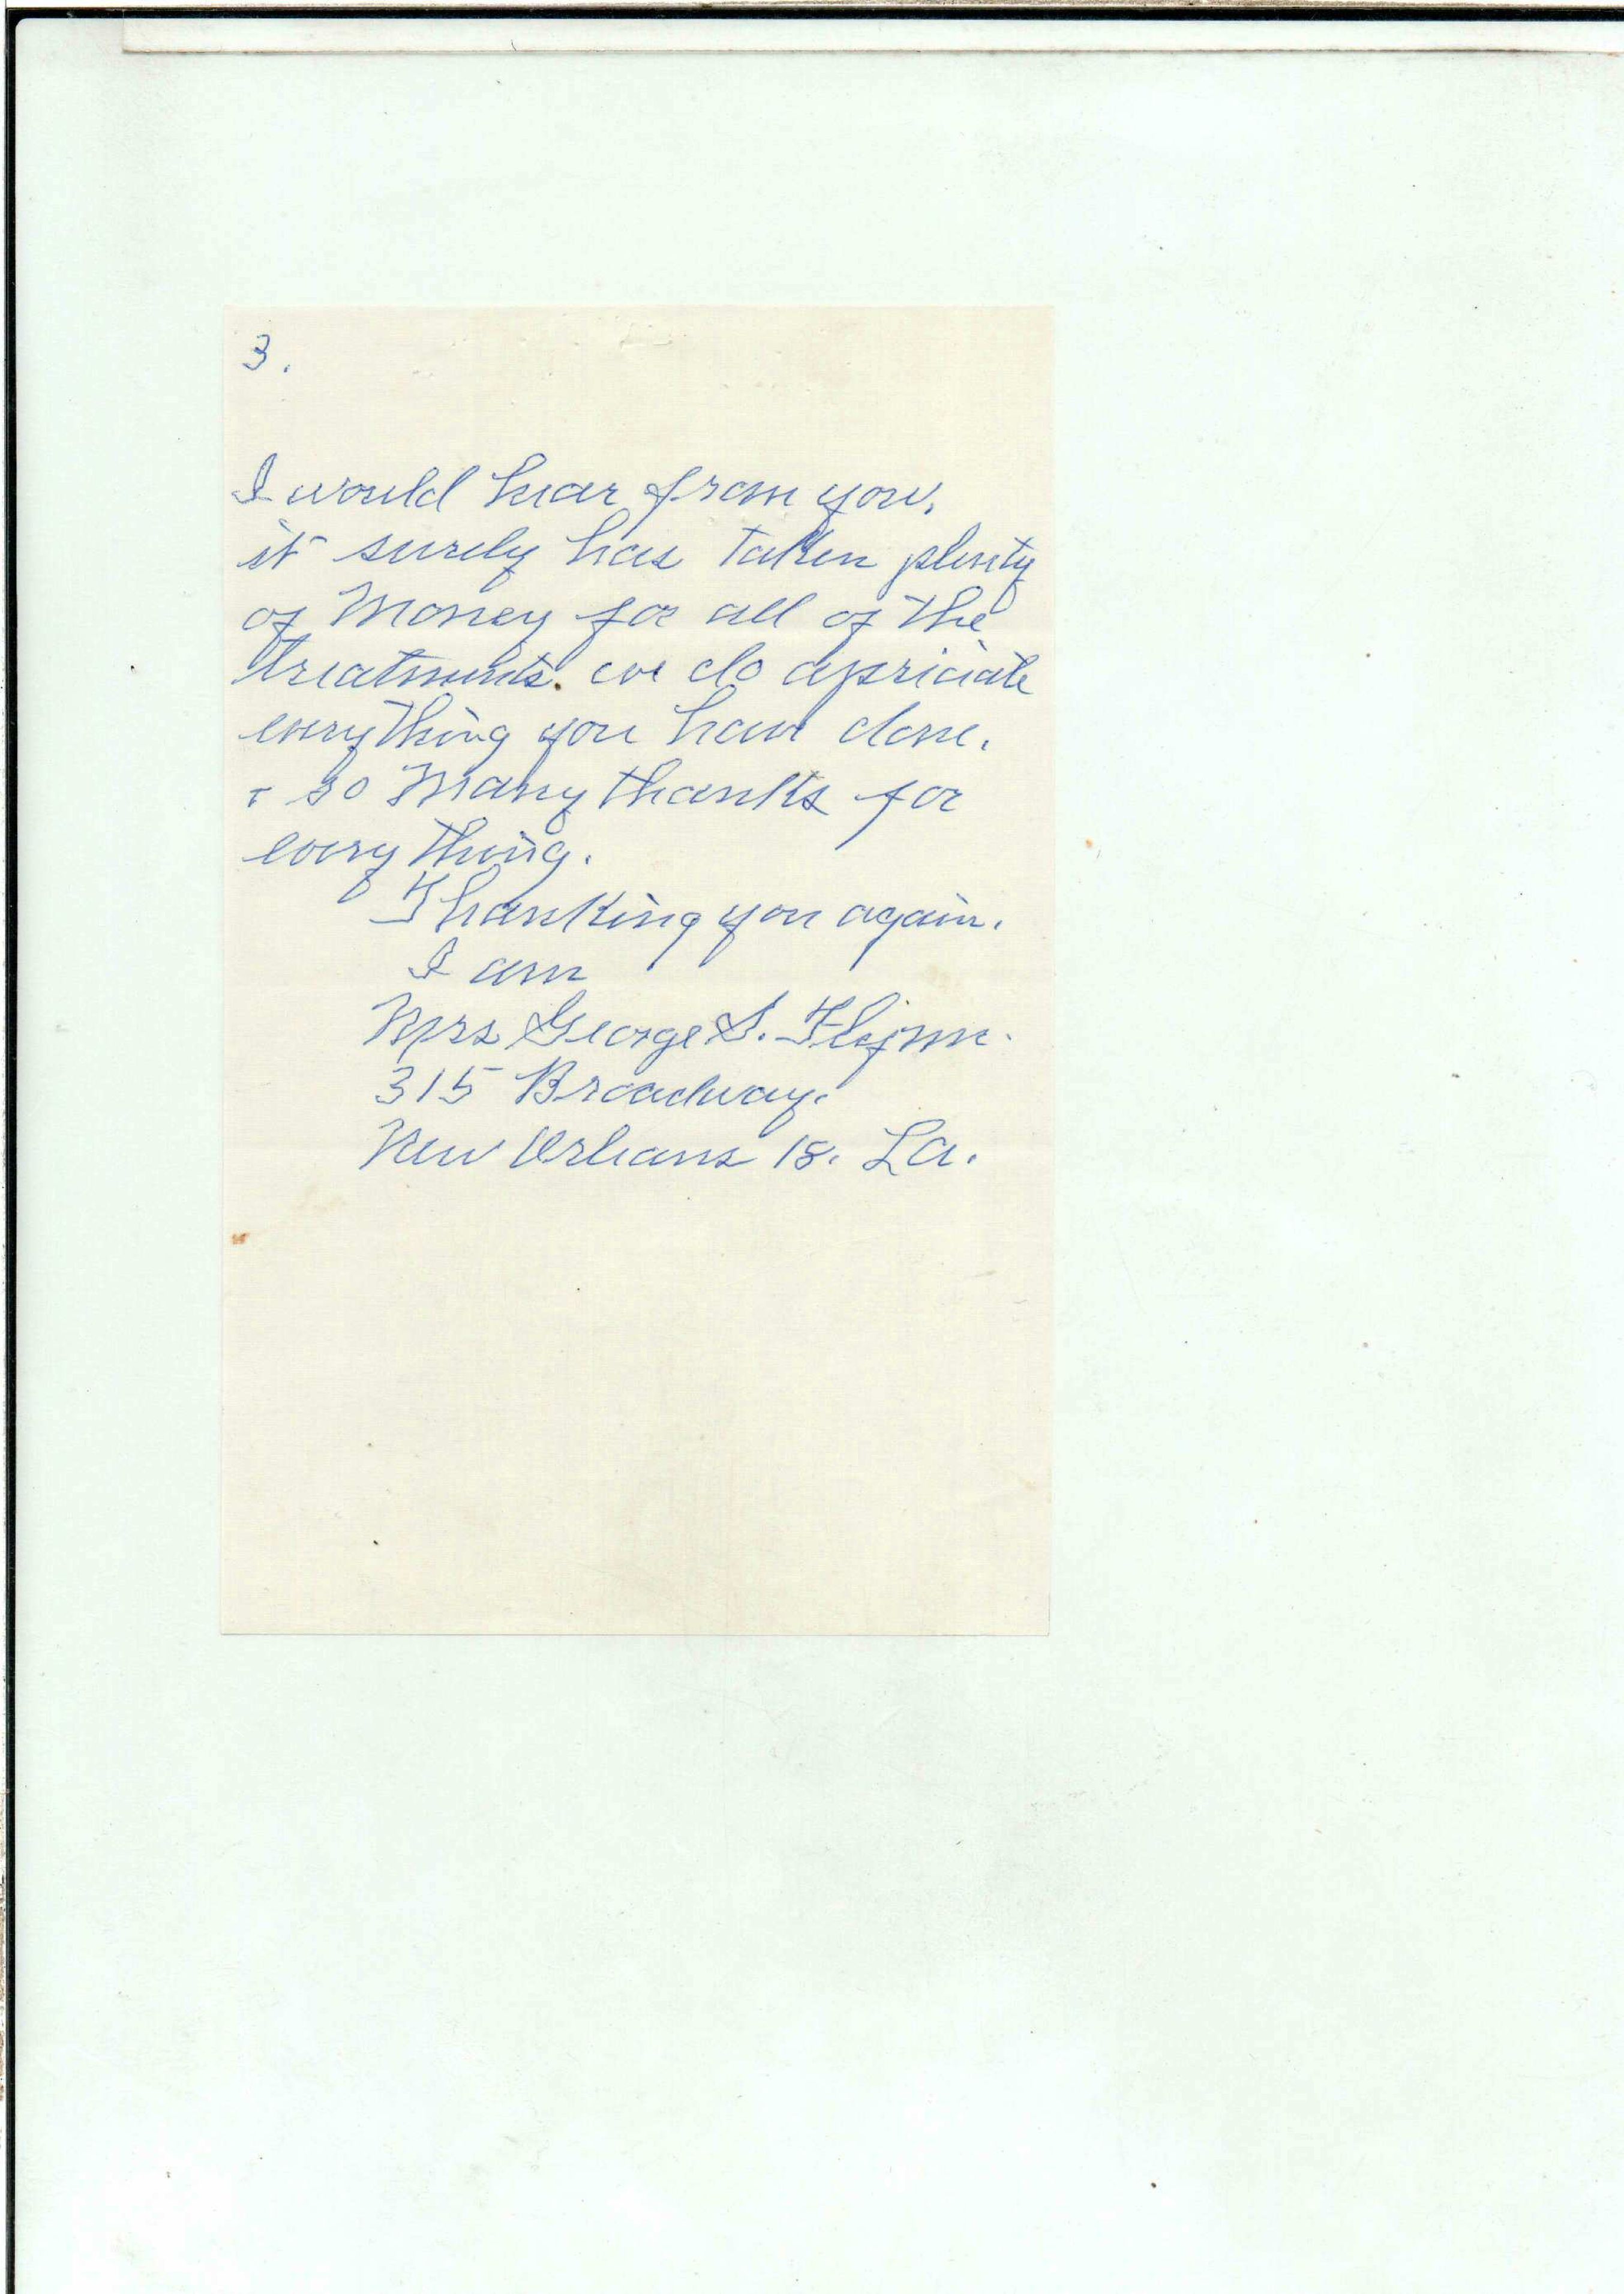 3.
I would hear from you.
it surely has taken plenty
of Money for all of the
treatments. we do apriciate
everything you have done.
+ so Many thanks for
every thing.
Thanking you again.
I am
Mrs George S. Flynn.
315 Broadway.
New Orleans 18. La.